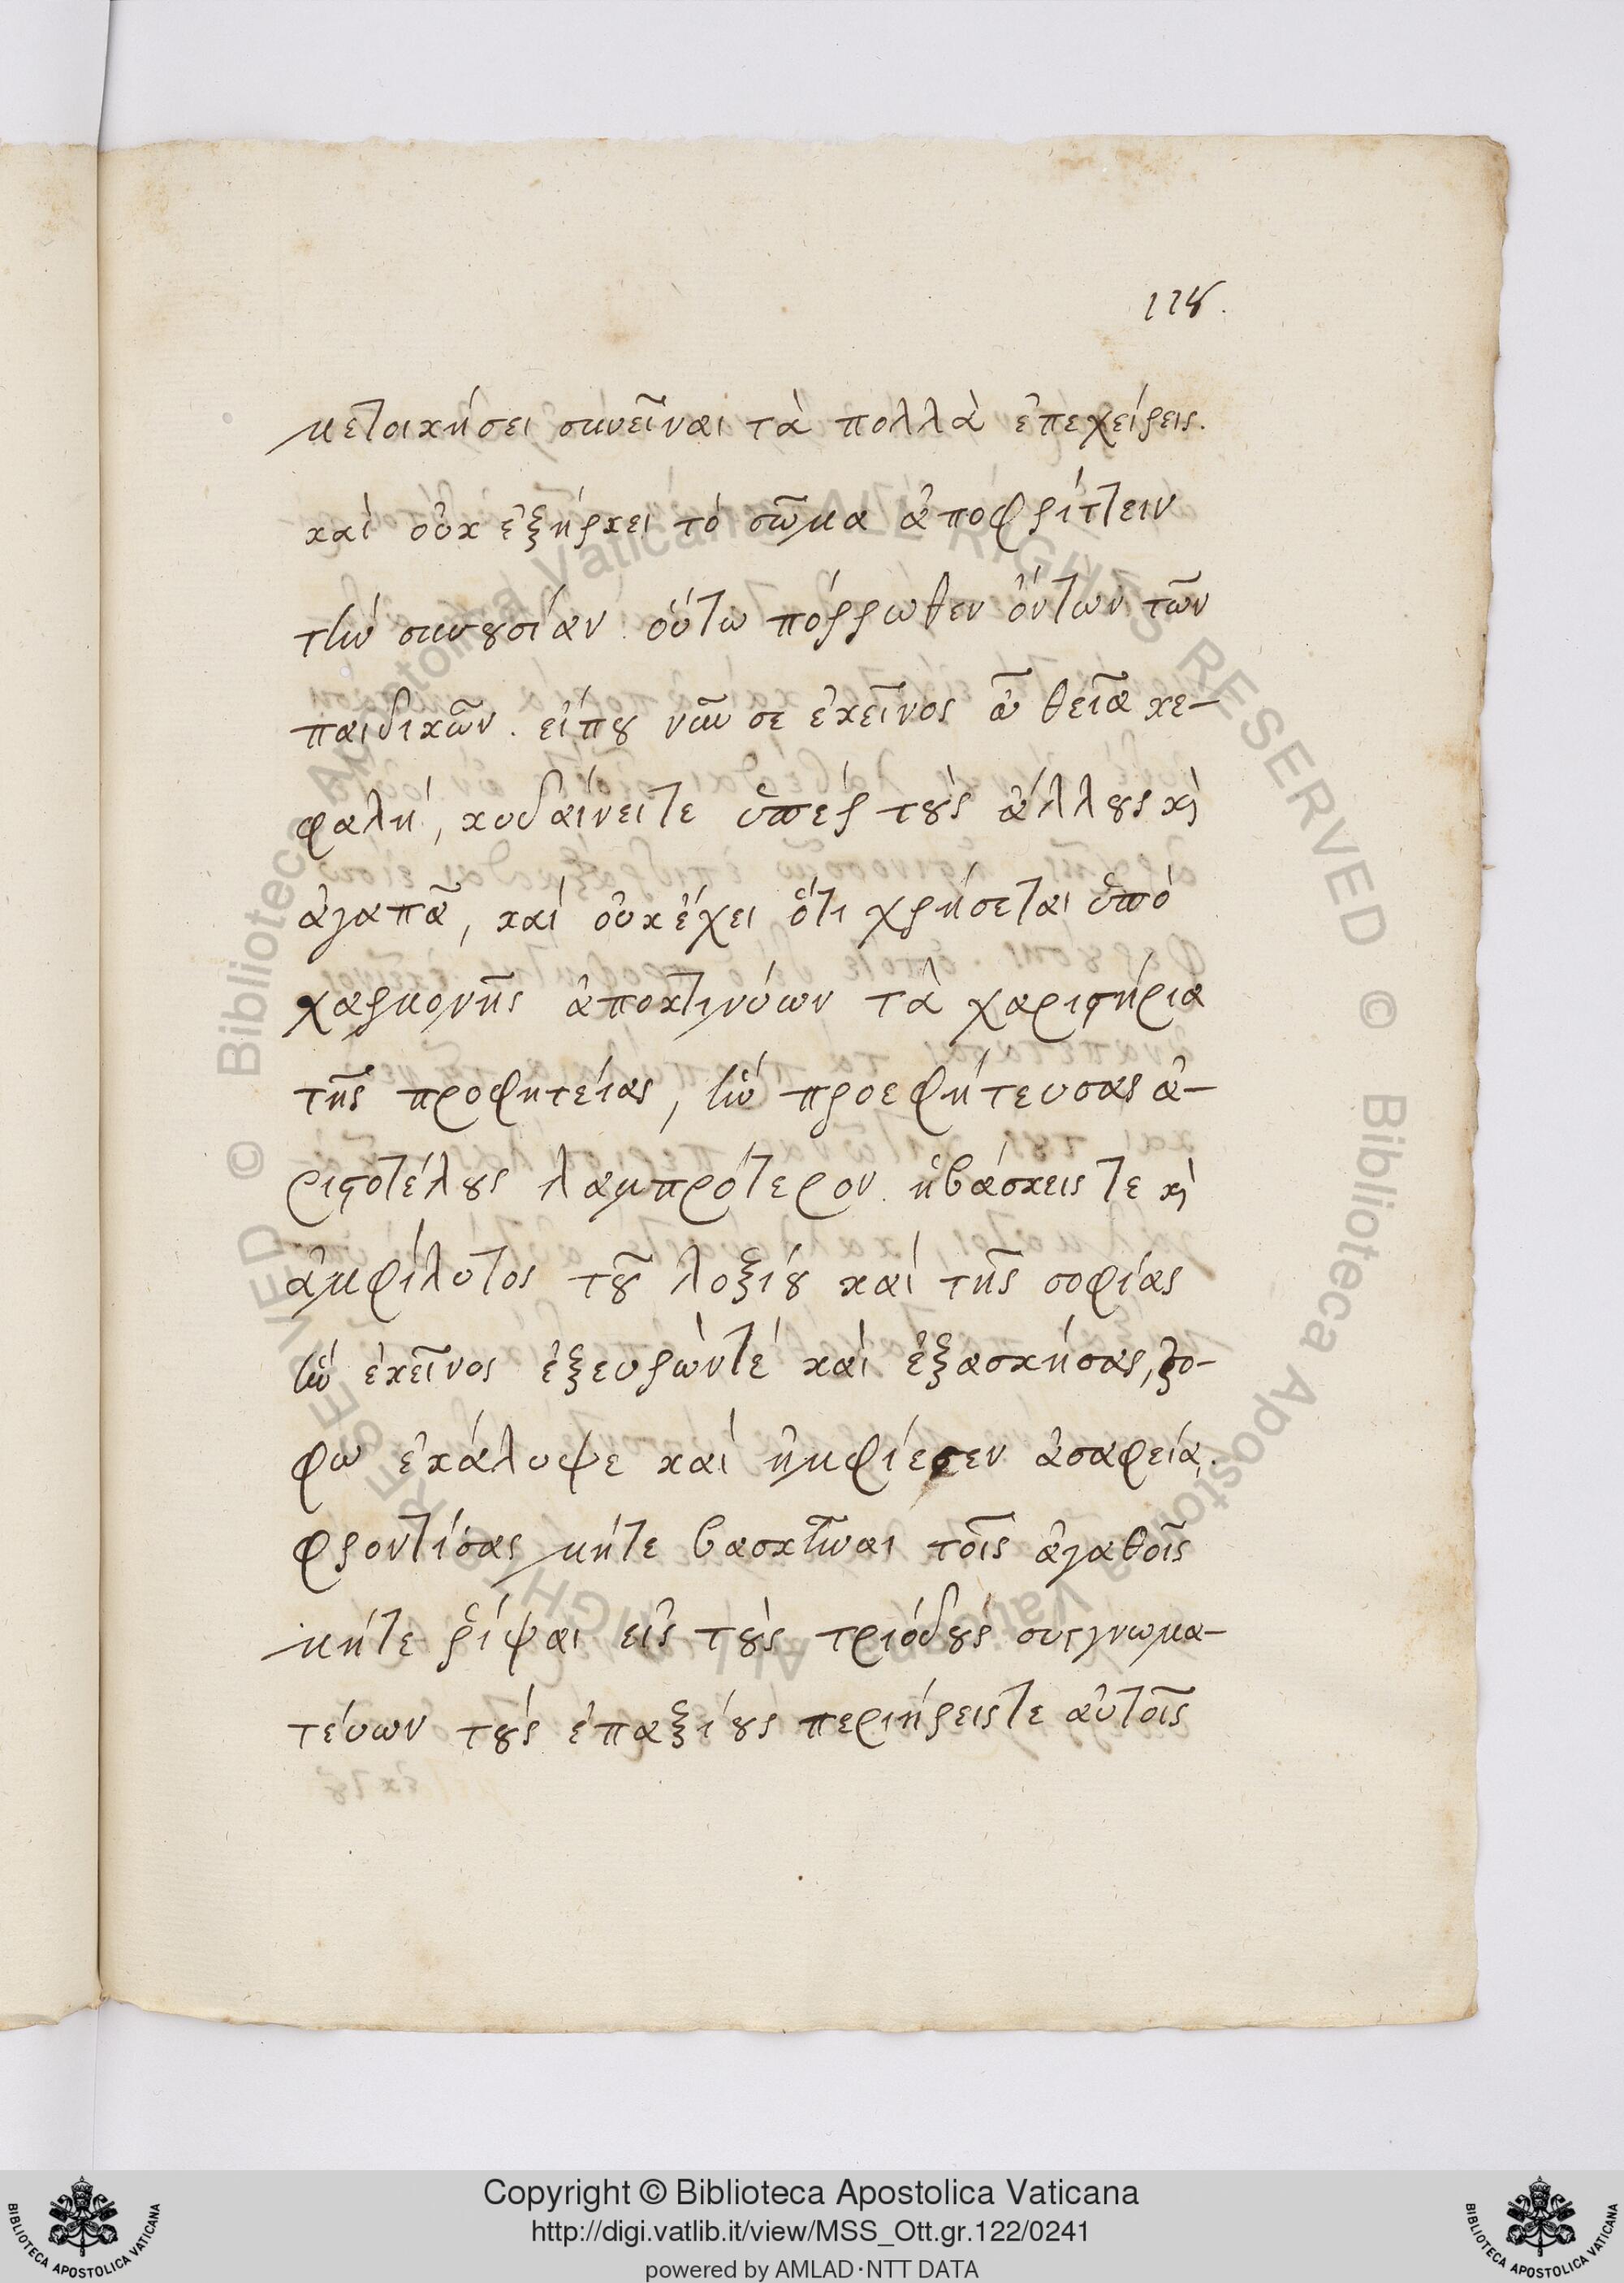 118.
μετοικήσει συνεῖναι τὰ πολλὰ ἐπεχείρεις.
καὶ οὐκ ἐξήρκει τὸ σῶμα ἀποθρίττειν
τὴν συνουσίαν. οὕτω πόρρωθεν ὄντων τῶν
παιδικῶν. εἴπου νῦν σε ἐκεῖνος ὦ θεῖα κε-
φαλὴ, κυδαίνειτε ὑπὲρ τοὺς ἄλλους καὶ
ἀγαπᾶ, καὶ οὐκ ἔχει ὅτι χρήσεται ὑπὸ
χαρμονῆς ἀποκτιννύων τὰ χαριστήρια
τῆς προφητείας, ἣν προεφήτευσας ἀ-
ριστοτέλους λαμπρότερον. ἡβάσκεις τε καὶ
ἀμφίλυτος τοῦ λοξίου καὶ τῆς σοφίας
ἣν ἐκεῖνος ἐξευρὼντέ καὶ ἐξασκήσας, ζο-
φω ἐκάλυψε καὶ ἠμφίεσεν ἀσαφεία.
φροντίσας μήτε βασκῆναι τοῖς ἀγαθοῖς
μήτε ῥίψαι εἰς τοὺς τριόδους συγνωμα-
τεύων τοὺς ἐπαξίους περιήρειστε αὐτοῖς
© Biblioteca Apostolica Vaticana ALL RIGHTS RESERVED © Biblioteca Apostolica Vaticana ALL RIGHTS RESERVED
Copyright © Biblioteca Apostolica Vaticana
http://digi.vatlib.it/view/MSS_Ott.gr.122/0241
powered by AMLAD·NTT DATA
BIBLIOTECA APOSTOLICA VATICANA
BIBLIOTECA APOSTOLICA VATICANA